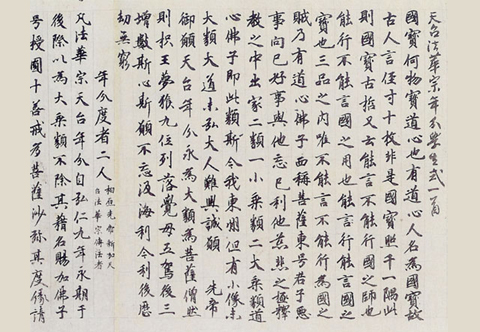 天台法華宗年分學生式一首
國寶何物寶道心也有道心人名為國寶故
古人言徑寸十枚非是國寶照千一隅此
則國寶古哲又云能言不能行國之師也
能行不能言國之用也能行能言國之
寶也三品之內唯不能言不能行為國之
賊乃有道心佛子西稱菩薩東号君子惡
事向己好事與他忘己利他慈悲之極釋
教之中出家二類一小乘類二大乘類道
心佛子即此類斯今我東州但有小像未
大類大道未弘大人難興誠願 先帝
御願天台年分永為大類為菩薩僧然
則枳王夢猴九位列落覺母五駕後三
增數斯心斯願不忘汲海利今利後歷
劫無窮
年分度者二人
柏原先帝新加天
台法華宗傳法者
凡法華宗天台年分自弘仁九年永期于
後際以為大乘類不除其籍名賜加佛子
号授圓十善戒為菩薩沙彌其度縁請